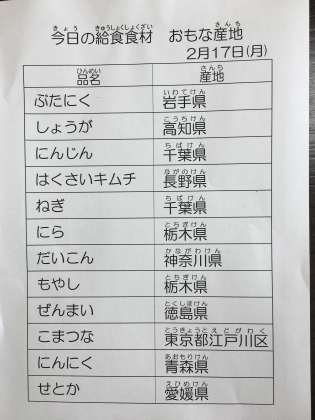 今日の給食食材　おもな産地
2月17日(月)
品名　産地
ぶたにく　岩手県
しょうが　高知県
にんじん　千葉県
はくさいキムチ　長野県
ねぎ　千葉県
にら　栃木県
だいこん　神奈川県
もやし　栃木県
ぜんまい　徳島県
こまつな　東京都江戸川区
にんにく　青森県
せとか　愛媛県